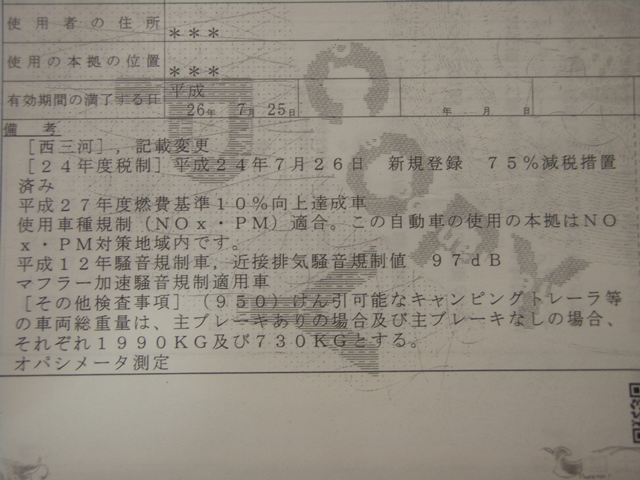 使用者の住所 ***
使用の本拠の位置 ***
有効期間の満了する日 平成26年 7月 25日 年 月 日
備考
［西三河］，記載変更
［２４年度税制］平成２４年７月２６日　新規登録　７５％減税措置
済み
平成２７年度燃費基準１０％向上達成車
使用車種規制（ＮＯｘ・ＰＭ）適合。この自動車の使用の本拠はＮＯ
ｘ・ＰＭ対策地域内です。
平成１２年騒音規制車，近接排気騒音規制値　９７ｄＢ
マフラー加速騒音規制適用車
［その他検査事項］（９５０）けん引可能なキャンピングトレーラ等
の車両総重量は、主ブレーキありの場合及び主ブレーキなしの場合、
それぞれ１９９０ＫＧ及び７３０ＫＧとする。
オパシメータ測定
COPY